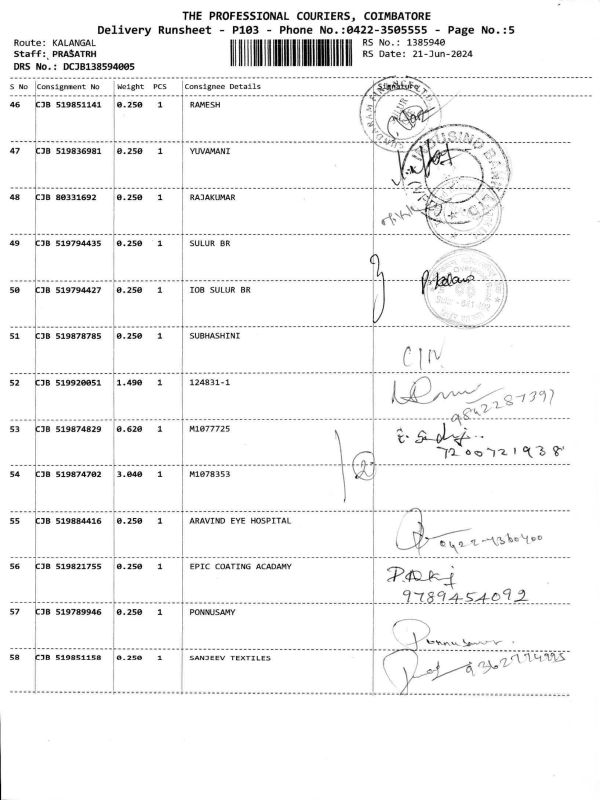 THE PROFESSIONAL COURIERS, COIMBATORE
Delivery Runsheet - P103 - Phone No.:0422-3505555 - Page No.:5
Route: KALANGAL RS No.: 1385940
Staff: PRASATRH RS Date: 21-Jun-2024
DRS No.: DCJB138594005
S No Consignment No Weight PCS Consignee Details
46 CJB 519851141 0.250 1 RAMESH
47 CJB 519836981 0.250 1 YUVAMANI
48 CJB 80331692 0.250 1 RAJAKUMAR
49 CJB 519794435 0.250 1 SULUR BR
50 CJB 519794427 0.250 1 IOB SULUR BR
51 CJB 519878785 0.250 1 SUBHASHINI
52 CJB 519920051 1.490 1 124831-1
9842287397
53 CJB 519874829 0.620 1 M1077725
7200721938
54 CJB 519874702 3.040 1 M1078353
2
55 CJB 519884416 0.250 1 ARAVIND EYE HOSPITAL
56 CJB 519821755 0.250 1 EPIC COATING ACADAMY
9789454092
57 CJB 519789946 0.250 1 PONNUSAMY
Ponnusamy.
58 CJB 519851158 0.250 1 SANJEEV TEXTILES